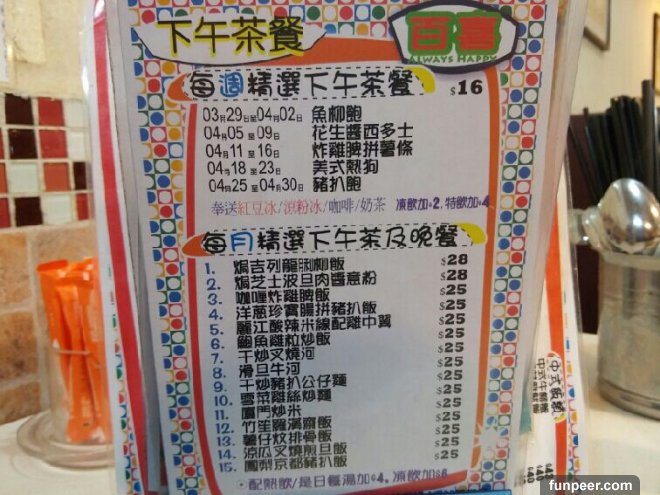 下午茶餐
百喜
ALWAYS HAPPY
每週精選下午茶餐 $16
03月29日至04月02日 魚柳飽
04月05至09日 花生醬西多士
04月11至16日 炸雞脾拼薯條
04月18至23日 美式熱狗
04月25至04月30日 豬扒飽
奉送紅豆冰/涼粉冰/咖啡/奶茶 凍飲加$2. 特飲加$4
每月精選下午茶及晚餐
1. 焗吉列龍脷柳飯 $28
2. 焗芝士波旦肉醬意粉 $28
3. 咖喱炸雞脾飯 $25
4. 洋蔥珍寶腸拼豬扒飯 $25
5. 麗江酸辣米線配雞中翼 $25
6. 鮑魚雞粒炒飯 $25
7. 干炒叉燒河 $25
8. 滑旦牛河 $25
9. 干炒豬扒公仔麵 $25
10. 雪菜雞絲炒麵 $25
11. 廈門炒米 $25
12. 竹笙羅漢齋飯 $25
13. 薯仔炆排骨飯 $25
14. 涼瓜叉燒煎旦飯 $25
15. 鳳梨京都豬扒飯 $25
配熱飲/是日餐湯加$4. 凍飲加$6
中式飯類
funpeer.com